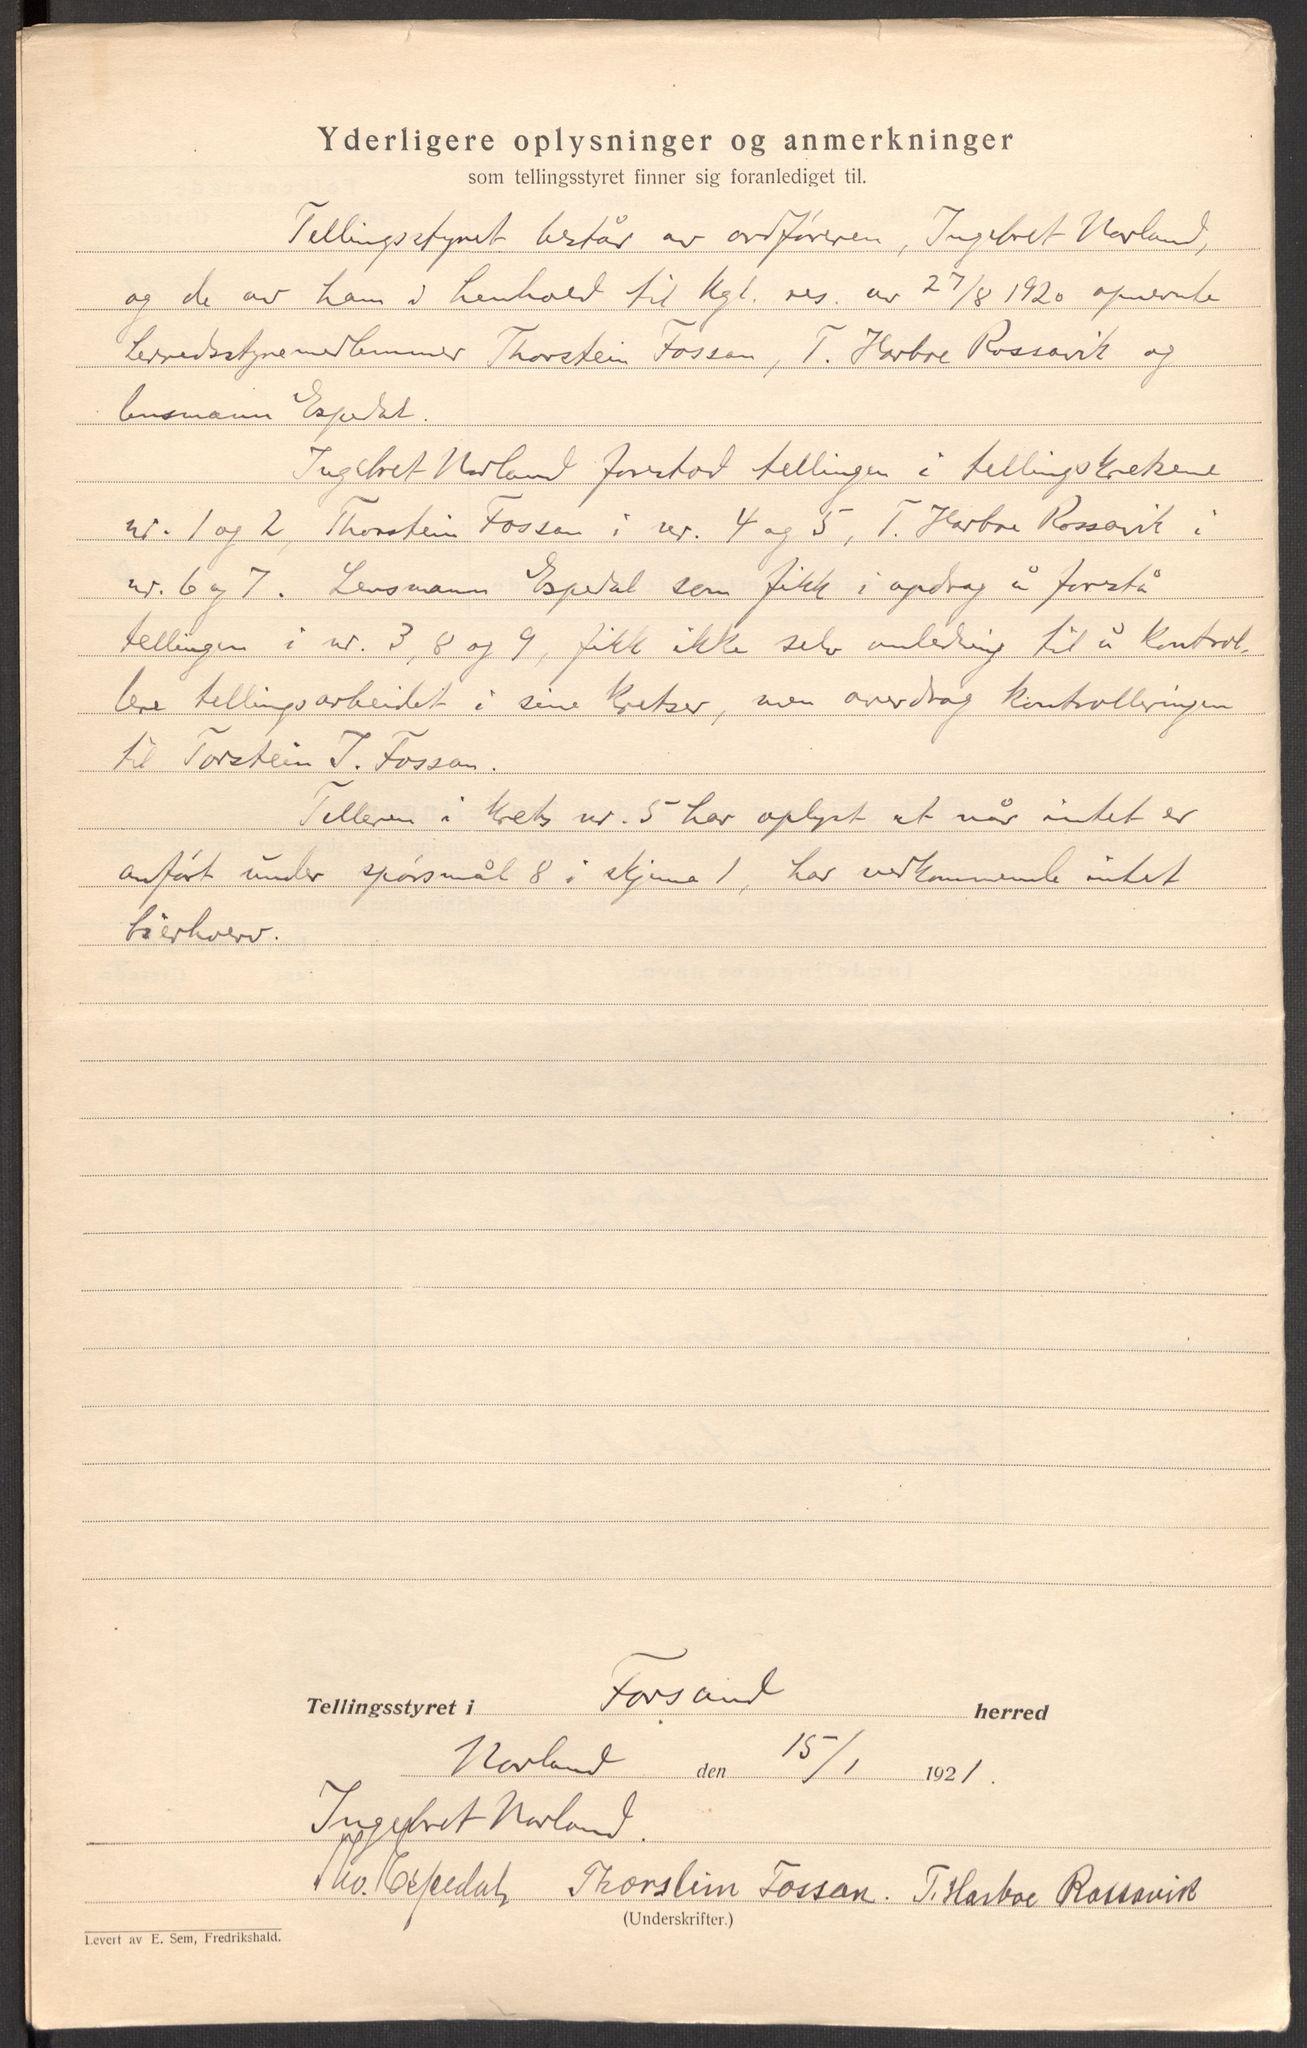 Yderligere oplysninger og anmerkninger
som tellingsstyret finner sig foranlediget til.
Tellingsstyret består av ordføreren, Ingebret Norland,
og de av ham i henhold til kgl. res. av 27/8 1920 opnevnte
herredsstyremedlemmer Thorstein Fossan, T. Harboe Rossavik og
lensmann Espedal.
Ingebret Norland forestod tellingen i tellingskretsene
nr. 1 og 2, Thorstein Fossan i nr. 4 og 5, T. Harboe Rossavik i
nr. 6 og 7. Lensmann Espedal som fikk i opdrag å forestå
tellingen i nr. 3, 8 og 9, fikk ikke selv anledning til å kontrol-
lere tellingsarbeidet i sine kretser, men overdrog kontrolleringen
til Torstein J. Fossan.
Telleren i krets nr. 5 har oplyst at når intet er
anført under spørsmål 8 i skjema 1, har vedkommende intet
bierhverv.
Tellingsstyret i Forsand herred
Norland den 15/1 1921.
Ingebret Norland.
Espedal Thorstein Fossan. T. Harboe Rossavik
(Underskrifter.)
Levert av E. Sem, Fredrikshald.